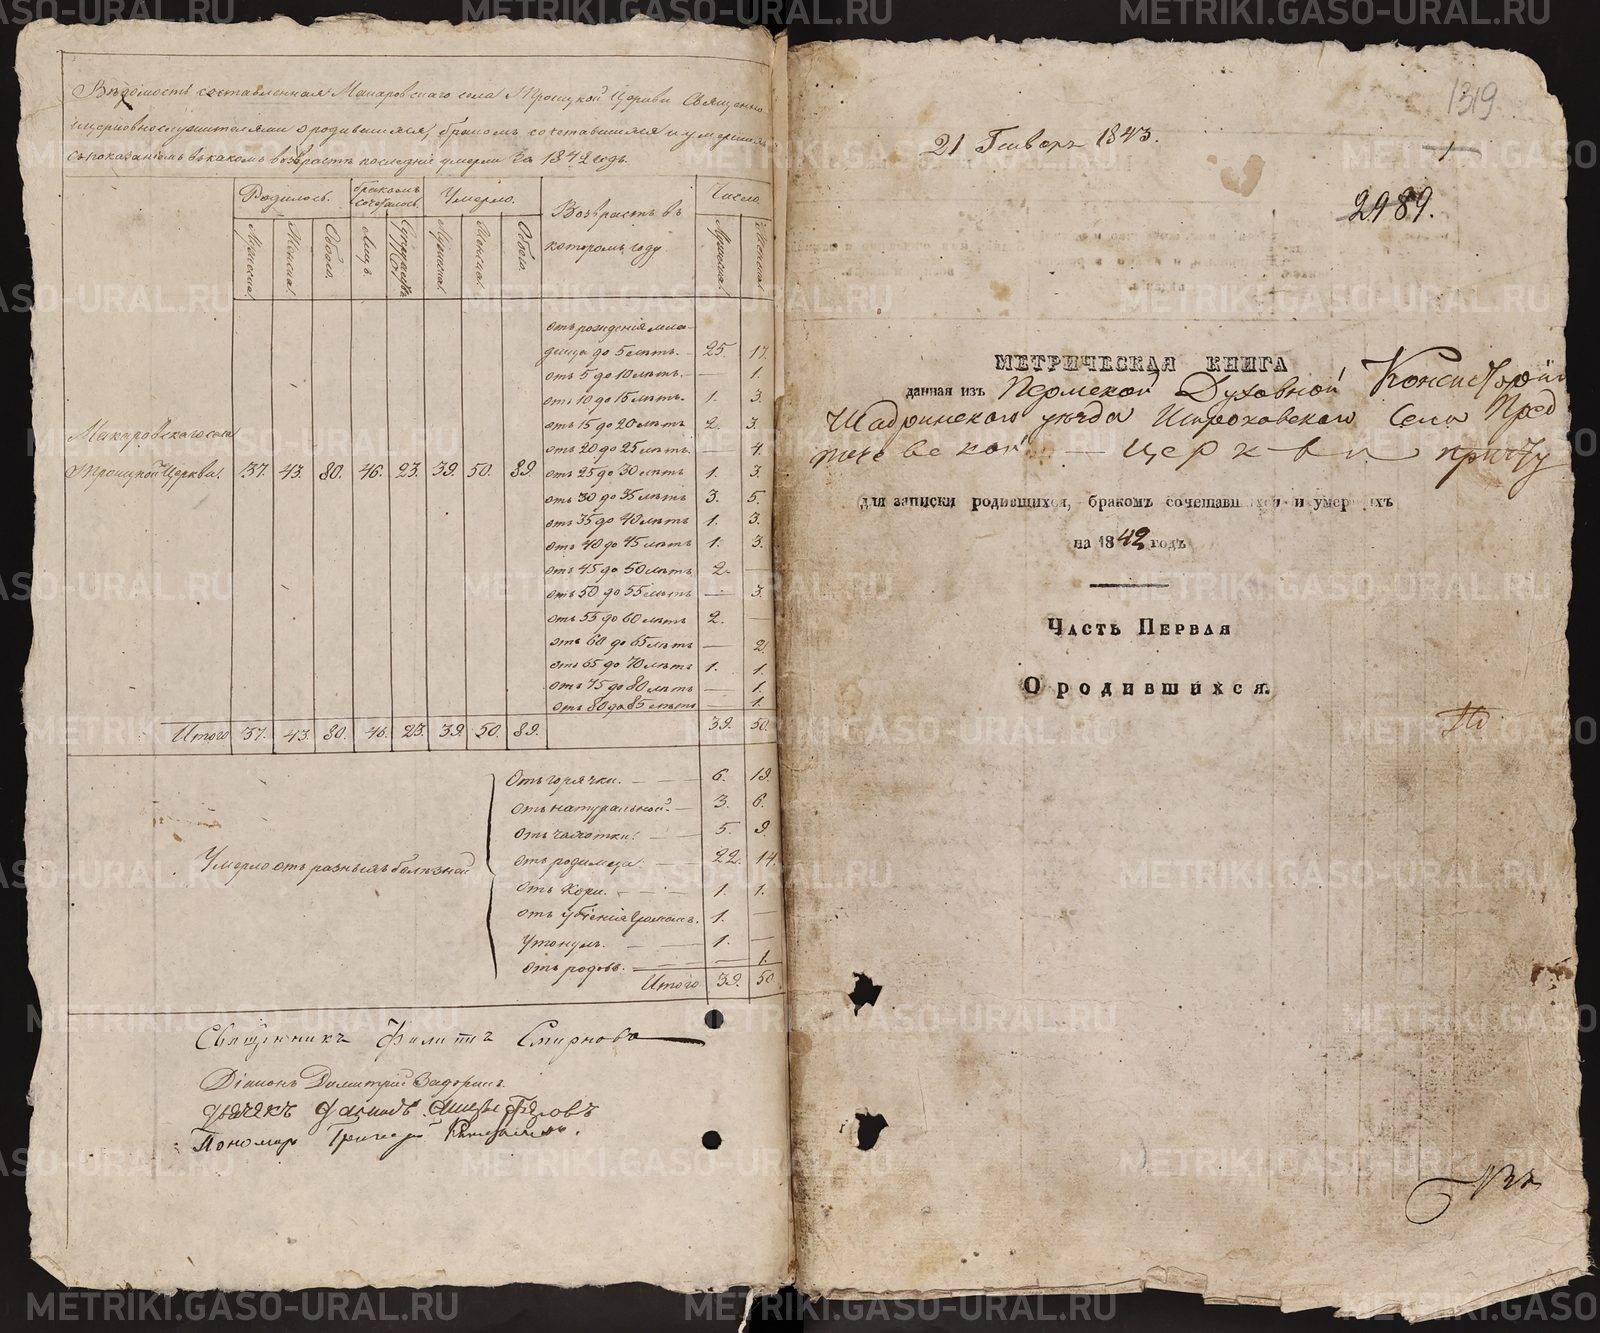 Вѣдомость составленная Макаровскаго села Троицкой Церкви Священно
ицерковнослужителями ородившихся, бракомъ сочетавшихся иумершихъ
съпоказаніемъ въкакомъ возврастѣ послѣдніе умерли За 1842 годъ.
Родилось.
бракомъ сочеталось.
Умерло.
Возврастъ въ
которомъ году
Число
Мужеска.
Женска.
Обоего.
Лицъ.
Супружествъ
Мужеска.
Женска.
Обоего.
Мужеска.
Женска.
отъ рожденія мла-
денца до 5 лѣтъ. 25. 17.
отъ 5 до 10 лѣтъ. — 1.
отъ 10 до 15 лѣтъ. 1. 3.
отъ 15 до 20 лѣтъ 2. 3.
отъ 20 до 25 лѣтъ. — 4.
Макаровскаго села
Троицкой Церкви. 37. 43. 80. 46. 23. 39. 50. 89.
отъ 25 до 30 лѣтъ 1. 3.
отъ 30 до 35 лѣтъ 3. 5.
отъ 35 до 40 лѣтъ 1. 3.
отъ 40 до 45 лѣтъ 1. 3.
отъ 45 до 50 лѣтъ 2. —
отъ 50 до 55 лѣтъ — 3.
отъ 55 до 60 лѣтъ 2. —
отъ 60 до 65 лѣтъ — 2.
отъ 65 до 70 лѣтъ 1. 1.
отъ 75 до 80 лѣтъ — 1.
отъ 80 до 85 лѣтъ — 1.
Итого 37. 43. 80. 46. 23. 39. 50. 89. 39. 50.
Умерло отъ разныхъ болѣзней
Отъ горячки. — 6. 19.
Отъ натуральной. — 3. 6.
Отъ чахотки. — 5. 9.
Отъ родимца. — 22. 14.
Отъ Кори. — 1. 1.
Отъ убіенія Громомъ. 1. —
Утонулъ. — 1. —
Отъ родовъ. — 1.
Итого 39. 50.
Священникъ Филиппъ Смирновъ
Діаконъ Димитрій Задоринъ.
дьячекъ
Пономарь Григорій
1319
21 Генваря 1843.
1
2989.
МЕТРИЧЕСКАЯ КНИГА
данная изъ Пермской Духовной Консисторіи
Шадринскаго уѣзда Широковскаго Села Пред
течевской — Церкви причту
для записки родившихся, бракомъ сочетавшихся и умершихъ
на 1842 годъ
Часть Первая
О родившихся.
METRIKI.GASO-URAL.RU